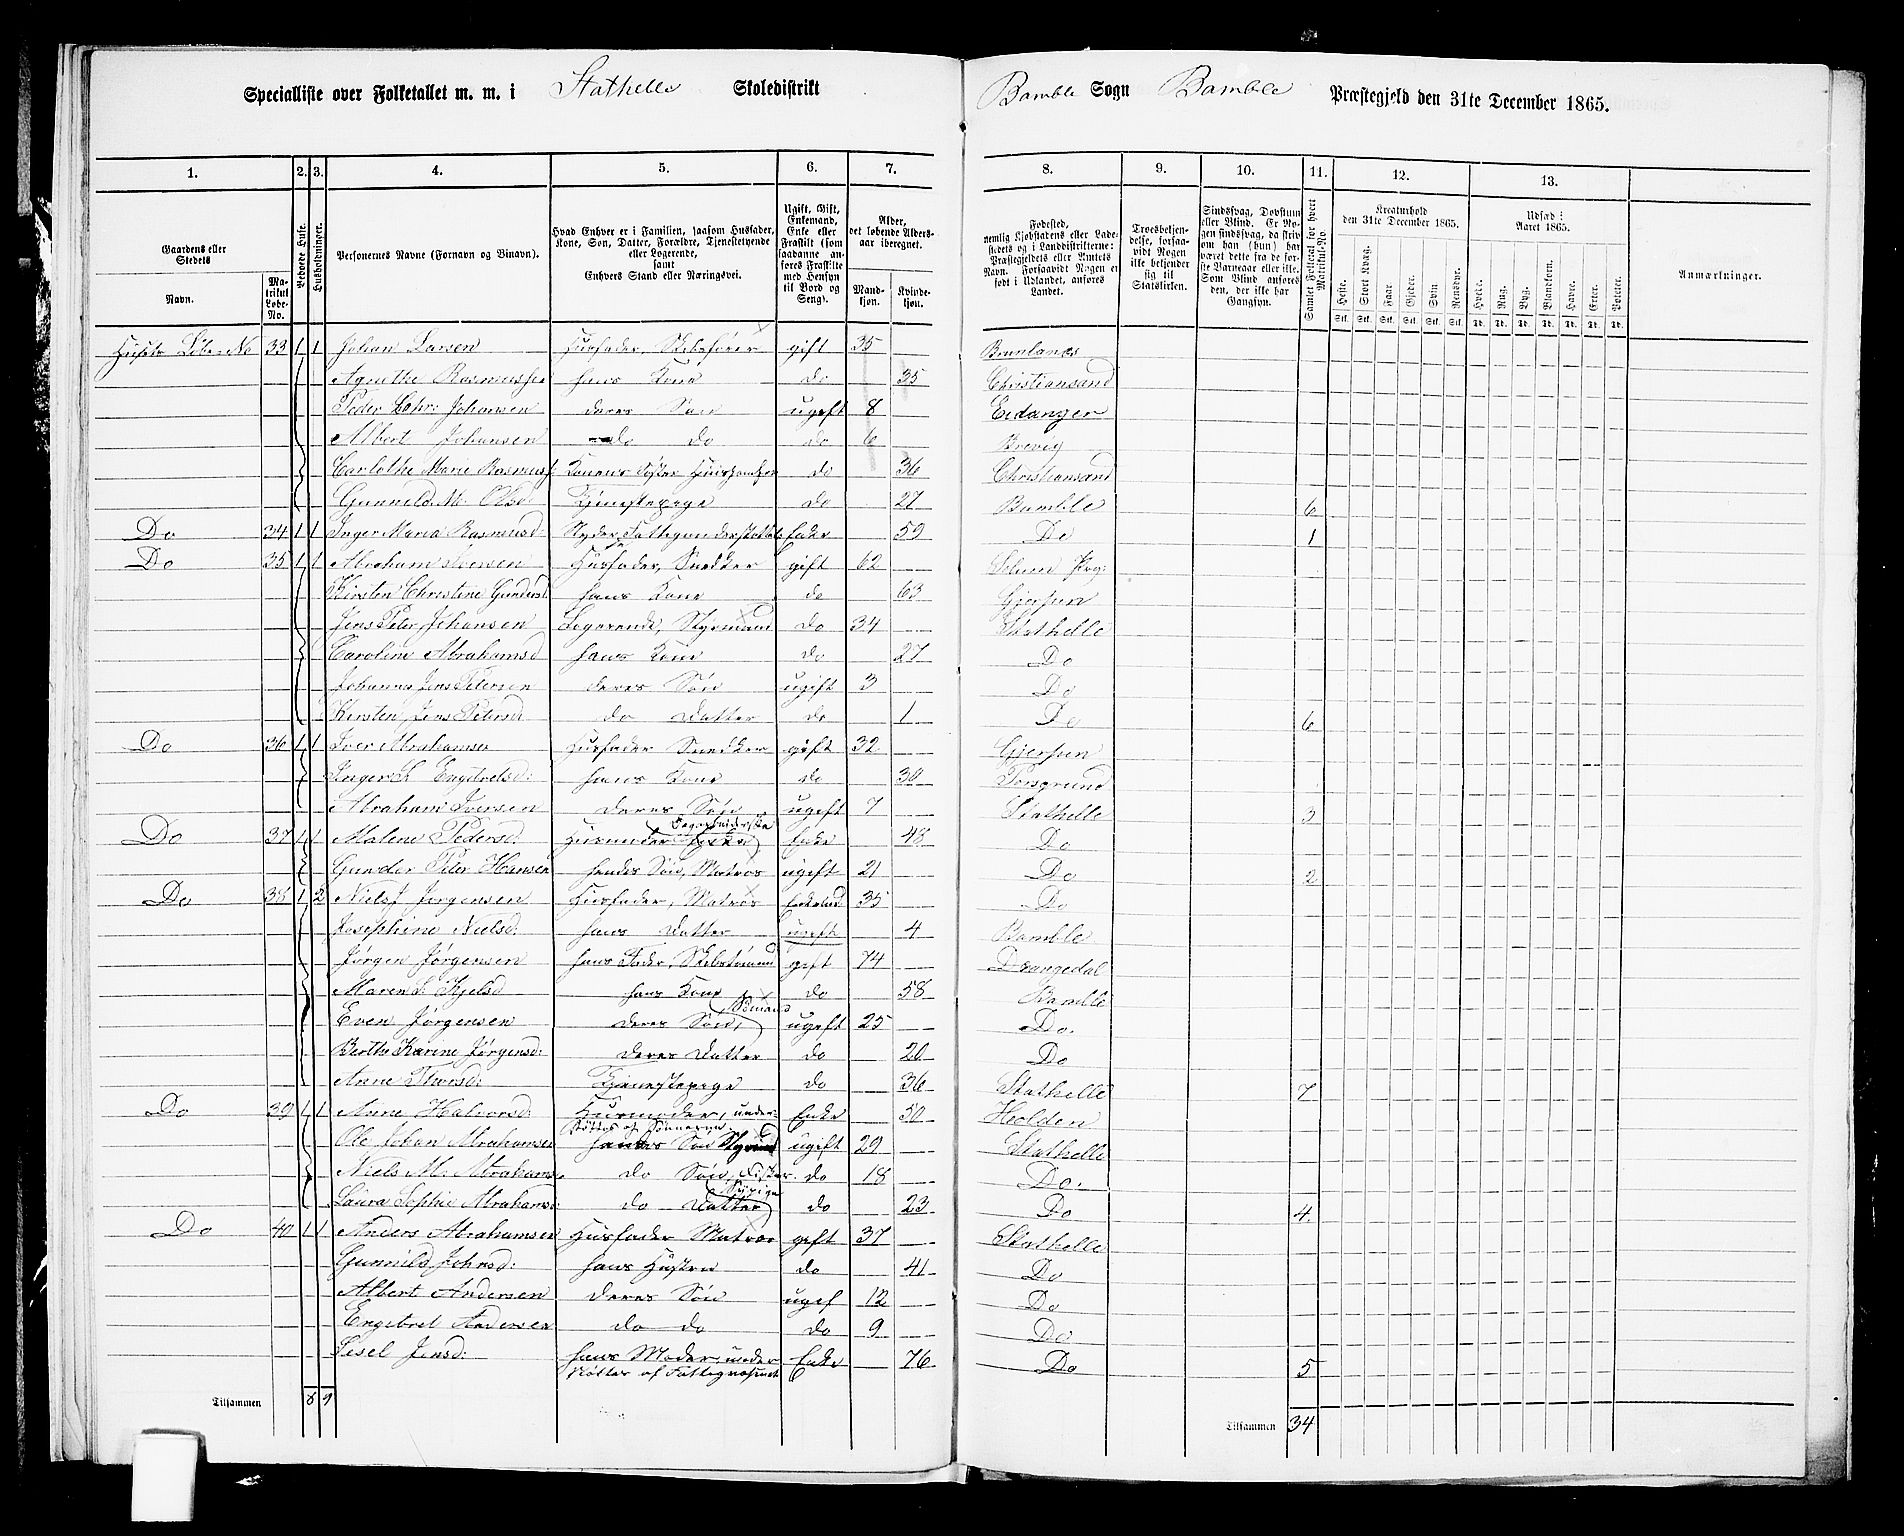 Specialliste over Folketallet m. m. i Stathelle Skoledistrikt
Bamble Sogn Bamble Præstegjeld den 31te December 1865.
1. 2. 3. 4. 5. 6. 7. 8. 9. 10. 11. 12. 13.
Gaardens eller Stedets
Navn.
Matrikul Løbe-No.
Beboede Huse.
Husholdninger.
Personernes Navne (Fornavn og Binavn).
Hvad Enhver er i Familien, saasom Husfader, Kone, Søn, Datter, Forældre, Tjenestetyende eller Logerende, samt Enhvers Stand eller Næringsvei.
Ugift, Gift, Enkemand, Enke eller Fraskilt (som saadanne anføres Fraskilte med Hensyn til Bord og Seng).
Alder, det løbende Alders-aar iberegnet.
Mandkjøn.
Kvindekjøn.
Fødested, nemlig Kjøbstadens eller Ladestedets og i Landdistrikterne: Præstegjeldets eller Amtets Navn. Forsaavidt Nogen er født i Udlandet, anføres Landet.
Troesbekjendelse, forsaavidt Nogen ikke bekjender sig til Statskirken.
Sindssvag, Døvstum eller Blind. Er Nogen sindssvag, da skriv om han (hun) har været dette fra de første Barneaar eller ikke. Som Blind anføres den, der ikke har Gangsyn.
Samlet Folketal for hvert Matrikul-No.
Kreaturhold den 31te December 1865.
Heste. Stort Kvæg. Faar. Gjeder. Svin Rensdyr.
Stk. Stk. Stk. Stk. Stk. Stk.
Udsæd i Aaret 1865.
Hvede. Rug. Byg. Blandkorn. Havre. Erter. Poteter.
Td. Td. Td. Td. Td. Td. Td.
Anmærkninger.
Husets Løbe-No 33 1 1 Johan Larsen Husfader, Skibsfører gift 35 Brunlanes
Agnethe Rasmussen hans Kone do 35 Christiansand
Peder Johansen deres Søn ugift 8 Eidanger
Albert Johansen do do do 6 Brevig
Carlothe Marie Rasmuss Konens Søster do 36 Christiansand
Gunnild M. Olsd Tjenestepige do 27 Bamble 6
Do 34 1 1 Inger Maria Rasmusd. Nyder Fattigunderstøttelse Enke 59 Do 1
Do 35 1 1 Abraham Iversen Husfader, Snedker gift 62 Solum Prg:
Kirsten Christine Gundersd hans Kone do 63 Gjerpen
Jens Peter Johansen Logerende, Styrmand do 34 Stathelle
Caroline Abrahamsd hans Kone do 27 Do
Johannes Jens Petersen deres Søn ugift 3 Do
Kirsten Jens Petersd do Datter do 1 Do 6
Do 36 1 1 Iver Abrahamsen Husfader Snedker gift 32 Gjerpen
Inger S. Engebretsd: hans Kone do 30 Porsgrund
Abraham Iversen deres Søn ugift 7 Stathelle 3
Do 37 1 1 Malene Pedersd: Husmoder Enke 48 Do
Gunder Peter Hansen hendes Søn, Matros ugift 21 Do 2
Do 38 1 2 Niels J Jørgensen Husfader, Matros Enkemd 35 Do
Josephine Nielsd: hans Datter ugift 4 Bamble
Jørgen Jørgensen hans Fader, Skibstømmd gift 74 Drangedal
Maren S. Kjelsd hans Kone do 58 Bamble
Even Jørgensen deres Søn, Sømand ugift 25 Do.
Berthe Karine Jørgensd: deres Datter do 20 Do
Anne Thorsd: Tjenestepige do 36 Stathelle 7
Do 39 1 1 Anne Halvorsd: Husmoder, under-
støttes af Sønnerne. Enke 50 Holden
Ole Johan Abrahamsen hendes Søn Styrmd ugift 29 Stathelle
Niels M. Abrahams. do Søn, Fisker. do 18 Do.
Laura Sophie Abrahamsd: do Datter Sypige do 23 Do 4
Do 40 1 1 Anders Abrahamsen Husfader Matros gift 37 Stathelle
Gunnild Johnsd: hans Hustru do 41 Do
Albert Andersen deres Søn ugif 12 Do
Engebret Andersen do do do 9 Do
Sisel Jensd: hans Moder, under-
støttes af Fattigvæsenet Enke 76 Do 5
Tilsammen 8 9
Tilsammen 34